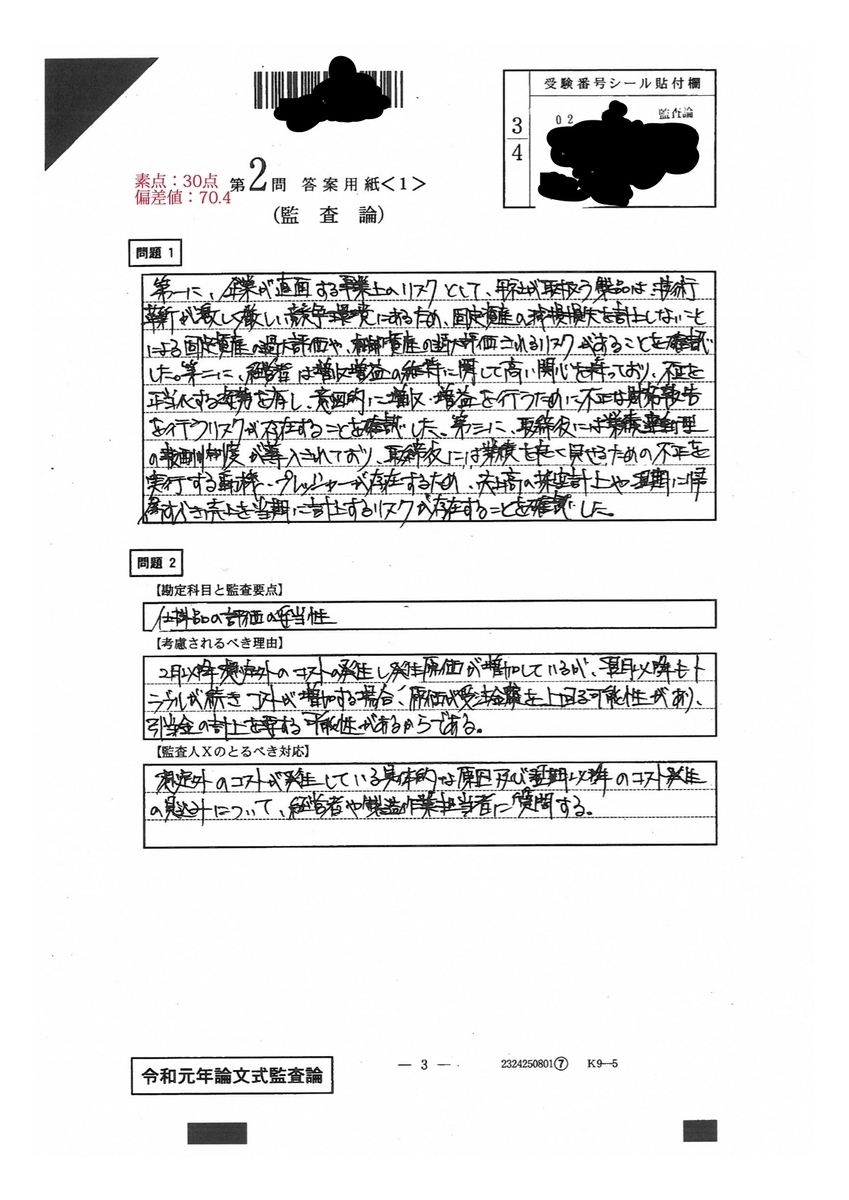 受験番号シール貼付欄
監査論
02
3
4
素点：30点
偏差値：70.4
第2問 答案用紙＜1＞
（監 査 論）
問題 1
第一に、企業が直面する事業上のリスクとして、甲社が取扱う製品は、技術
革新が激しく厳しい競争環境にあるため、固定資産の減損損失を計上しないこと
による固定資産の過大評価や、棚卸資産の過大評価されるリスクがあることを確認
した。第二に、経営者は増収増益の維持に関して高い関心を持っており、不正を
正当化する姿勢を有し、意図的に増収・増益を行うために不正な財務報告
を行うリスクが存在することを確認した。第三に、取締役には業績連動型
の報酬制度が導入されており、取締役には業績を良く見せるための不正を
実行する動機・プレッシャーが存在するため、売上高の架空計上や翌期に帰
属すべき売上を当期に計上するリスクが存在することを確認した。
問題 2
【勘定科目と監査要点】
仕掛品の評価の妥当性
【考慮されるべき理由】
2月以降想定外のコストの発生し発生原価が増加しているが、翌月以降もト
ラブルが続きコストが増加する場合、原価が受注金額を上回る可能性があり、
引当金の計上を要する可能性があるからである。
【監査人Xのとるべき対応】
想定外のコストが発生している具体的な原因及び翌期以降のコスト発生
の見込みについて、経営者や製造作業担当者に質問する。
― 3 ―
2324250801⑦ K9―5
令和元年論文式監査論